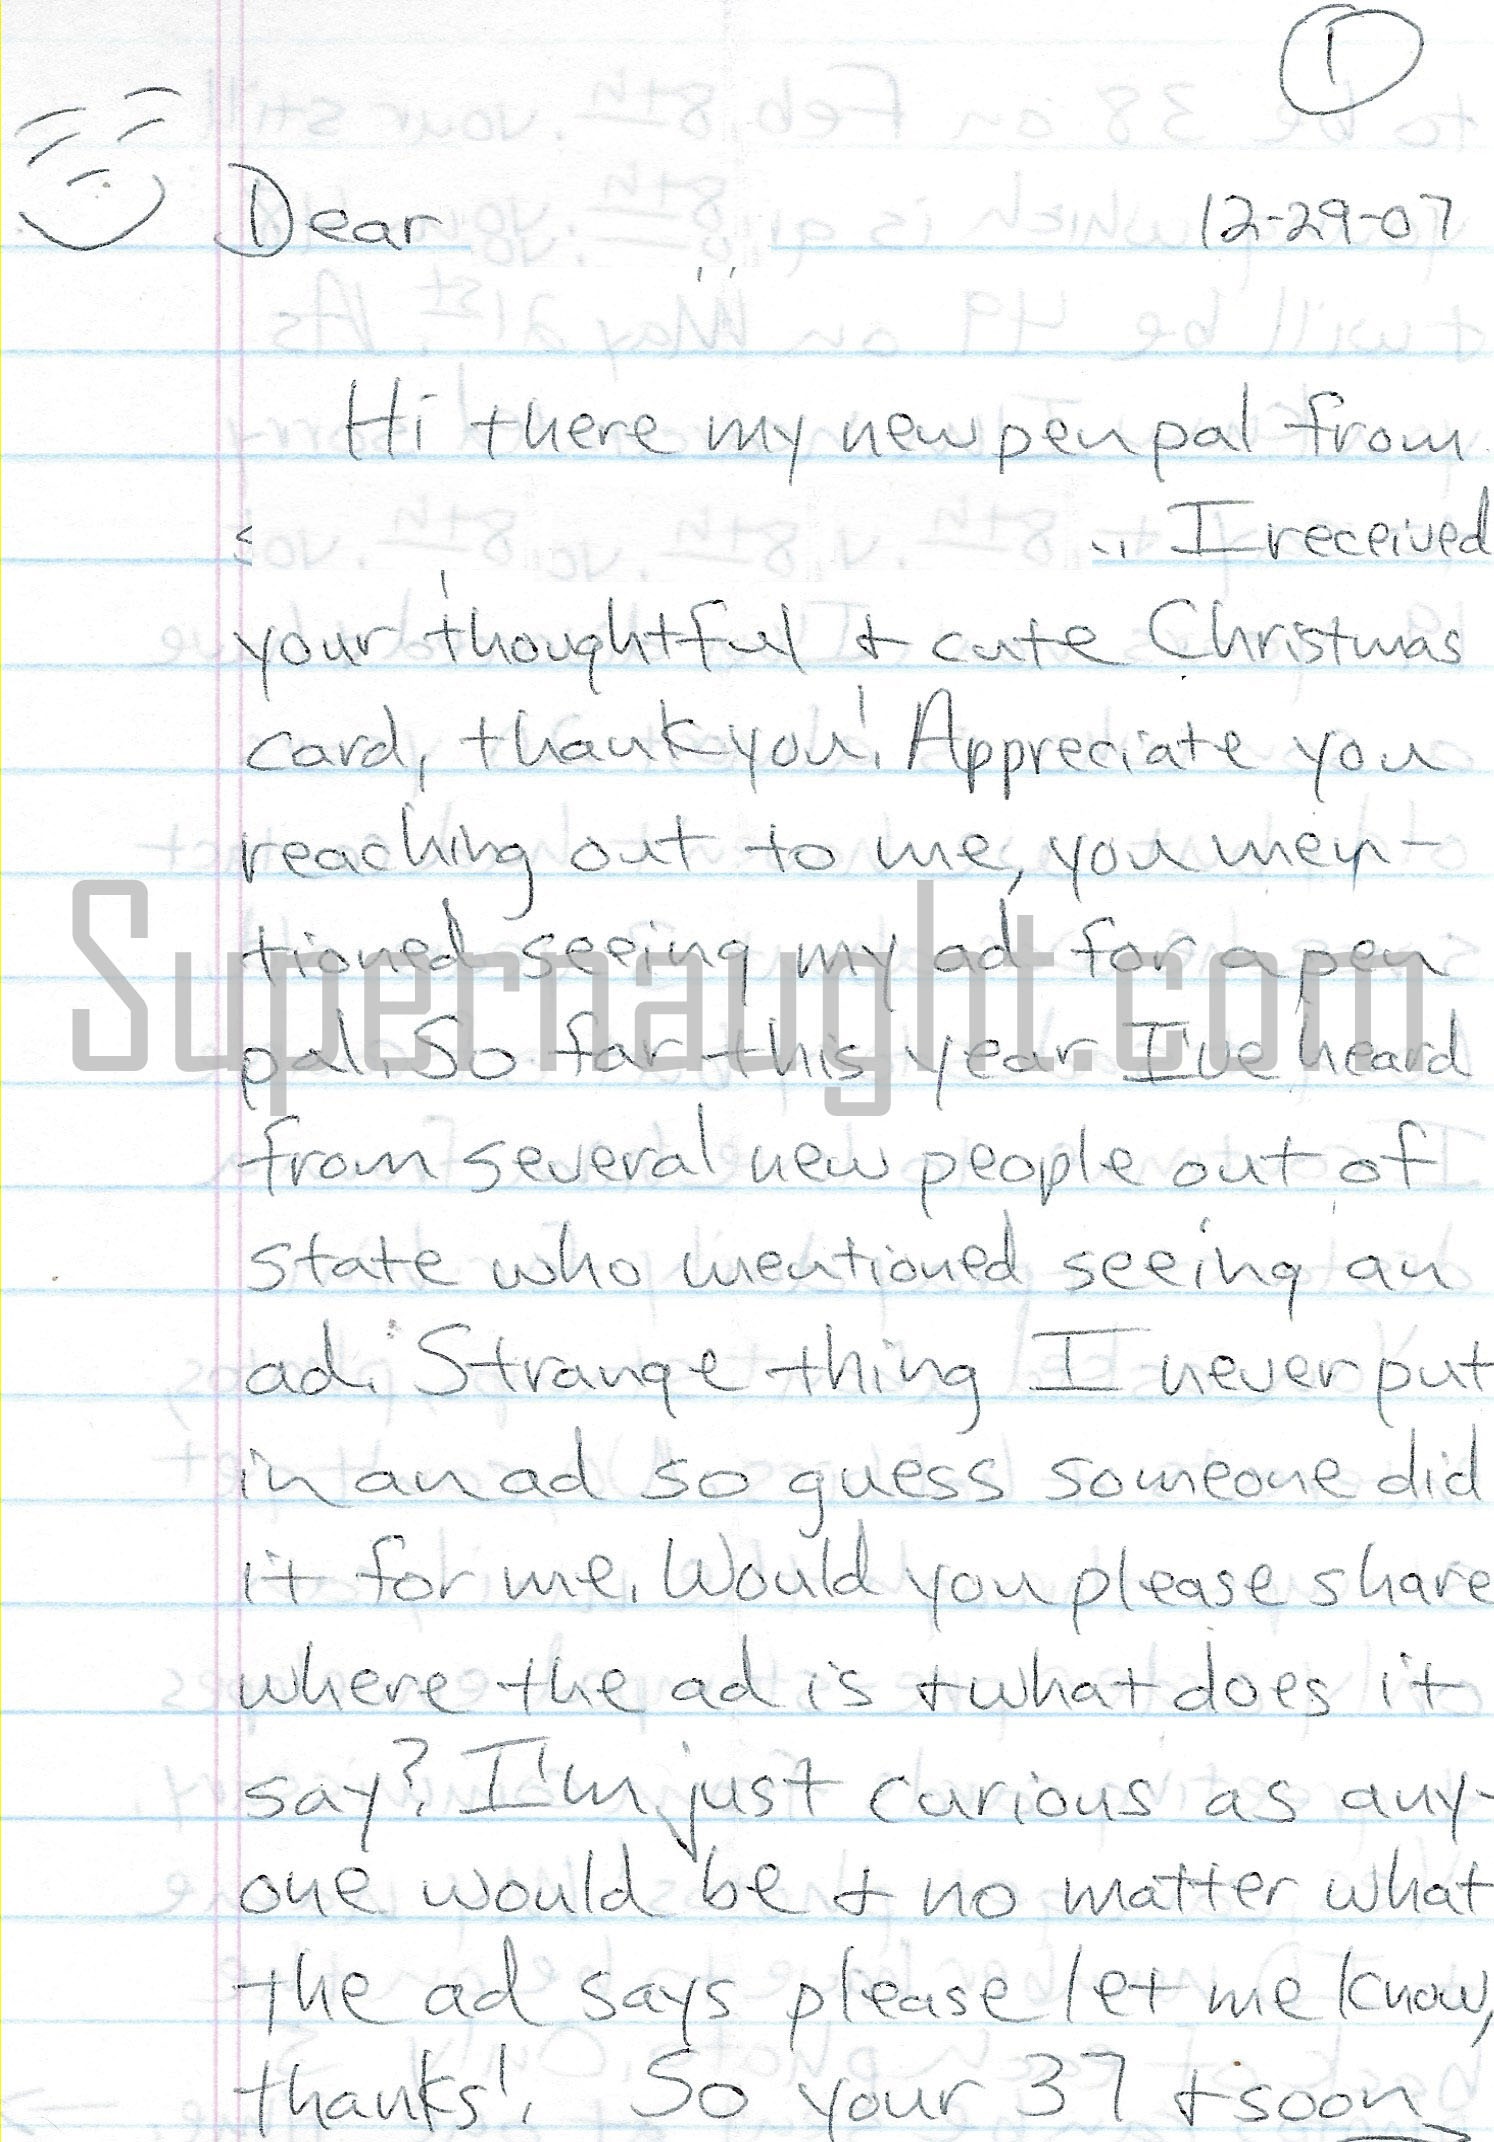 1
Dear 12-29-07
Hi there my new pen pal from
I received
your thoughtful & cute Christmas
card, thank you! Appreciate you
reaching out to me, you men-
tioned seeing my ad for a pen
Supernaught.com
pal. So far this year I've heard
from several new people out of
state who mentioned seeing an
ad. Strange thing I never put
in an ad so guess someone did
it for me. Would you please share
where the ad is & what does it
say? I'm just curious as any-
one would be & no matter what
the ad says please let me know,
thanks! So your 37 & soon